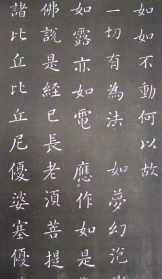 如如不動何以故
一切有為法 如夢幻泡
如露亦如電 應作如是
佛說是經已長老須菩提
諸比丘比丘尼優婆塞優